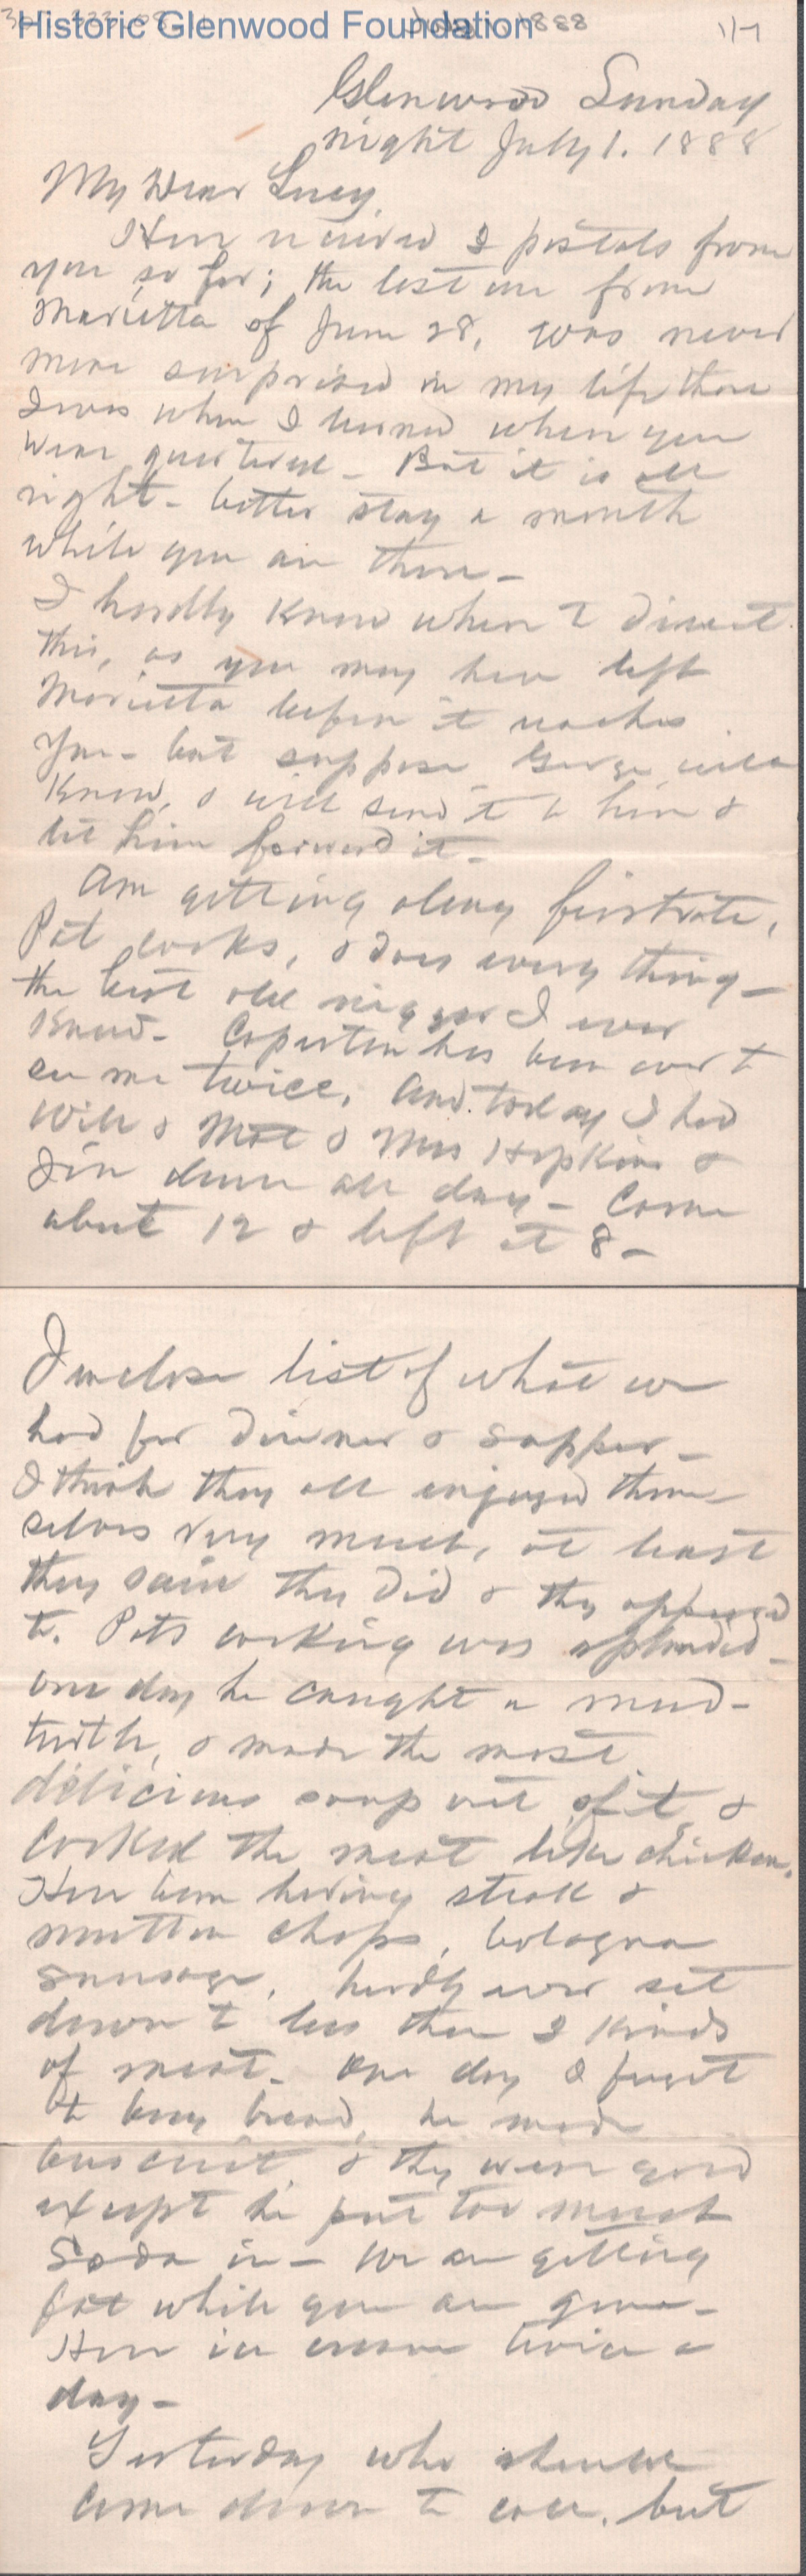 Historic Glenwood Foundation
1888
1/7
Glenwood Sunday
night July 1. 1888
My Dear Lucy
Have received 2 postals from
you so far; the last one from
Marietta of June 28, was never
more surprised in my life than
I was when I learned where you
were quartered - But it is all
right - better stay a month
while you are there -
I hardly know where to direct
this, as you may have left
Marietta before it reaches
you - but suppose George will
know, & will send it to him &
let him forward it -
Am getting along firstrate,
Pat cooks, & does every thing -
the best old nigger I ever
knew - Coperton has been over to
see me twice, And today I had
Will & Mat & Mrs Hopkins &
Jin down all day - Came
about 12 & left at 8 -
I inclose list of what we
had for dinner & supper -
I think they all enjoyed them-
selves very much, at least
they said they did & they appeared
to. Pats cooking was splendid -
one day he caught a mud-
turtle, & made the most
delicious soup out of it, &
cooked the meat like chicken.
Have been having steak &
mutton chops, bologna
sausage, hardly ever set
down to less than 2 kinds
of meat - One day I forgot
to buy bread, he made
buiscuit, & they were good
except he put too much
Soda in - We are getting
fat while you are gone -
Have ice cream twice a
day -
Yesterday who should
come down to call, but